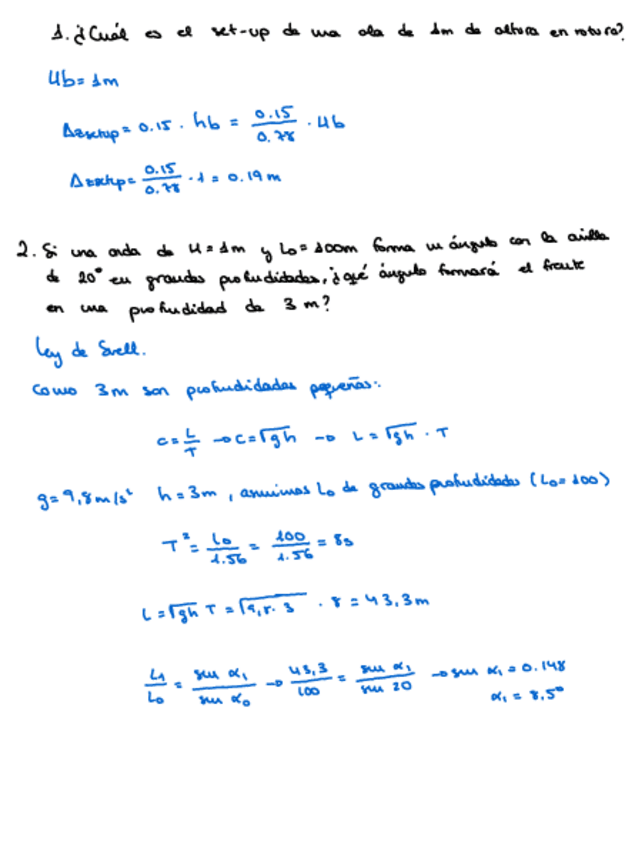 1. ¿Cuál es el set-up de una ola de 1m de altura en rotura?
Hb = 1m
Δzsetup = 0.15 · hb = 0.15/0.78 · Hb
Δzsetup = 0.15/0.78 · 1 = 0.19 m
2. Si una onda de H = 1m y L₀ = 100m forma un ángulo con la orilla
de 20° en grandes profundidades, ¿qué ángulo formará el frente
en una profundidad de 3 m?
Ley de Snell.
Como 3m son profundidades pequeñas:
c = L/T → c = √gh → L = √gh · T
g = 9,8 m/s² h = 3m, asumimos L₀ de grandes profundidades (L₀ = 100)
T² = L₀/1.56 = 100/1.56 = 8s
L = √gh T = √9,8 · 3 · 8 = 43,3m
L₁/L₀ = sen α₁/sen α₀ → 43,3/100 = sen α₁/sen 20 → sen α₁ = 0.148
α₁ = 8,5°